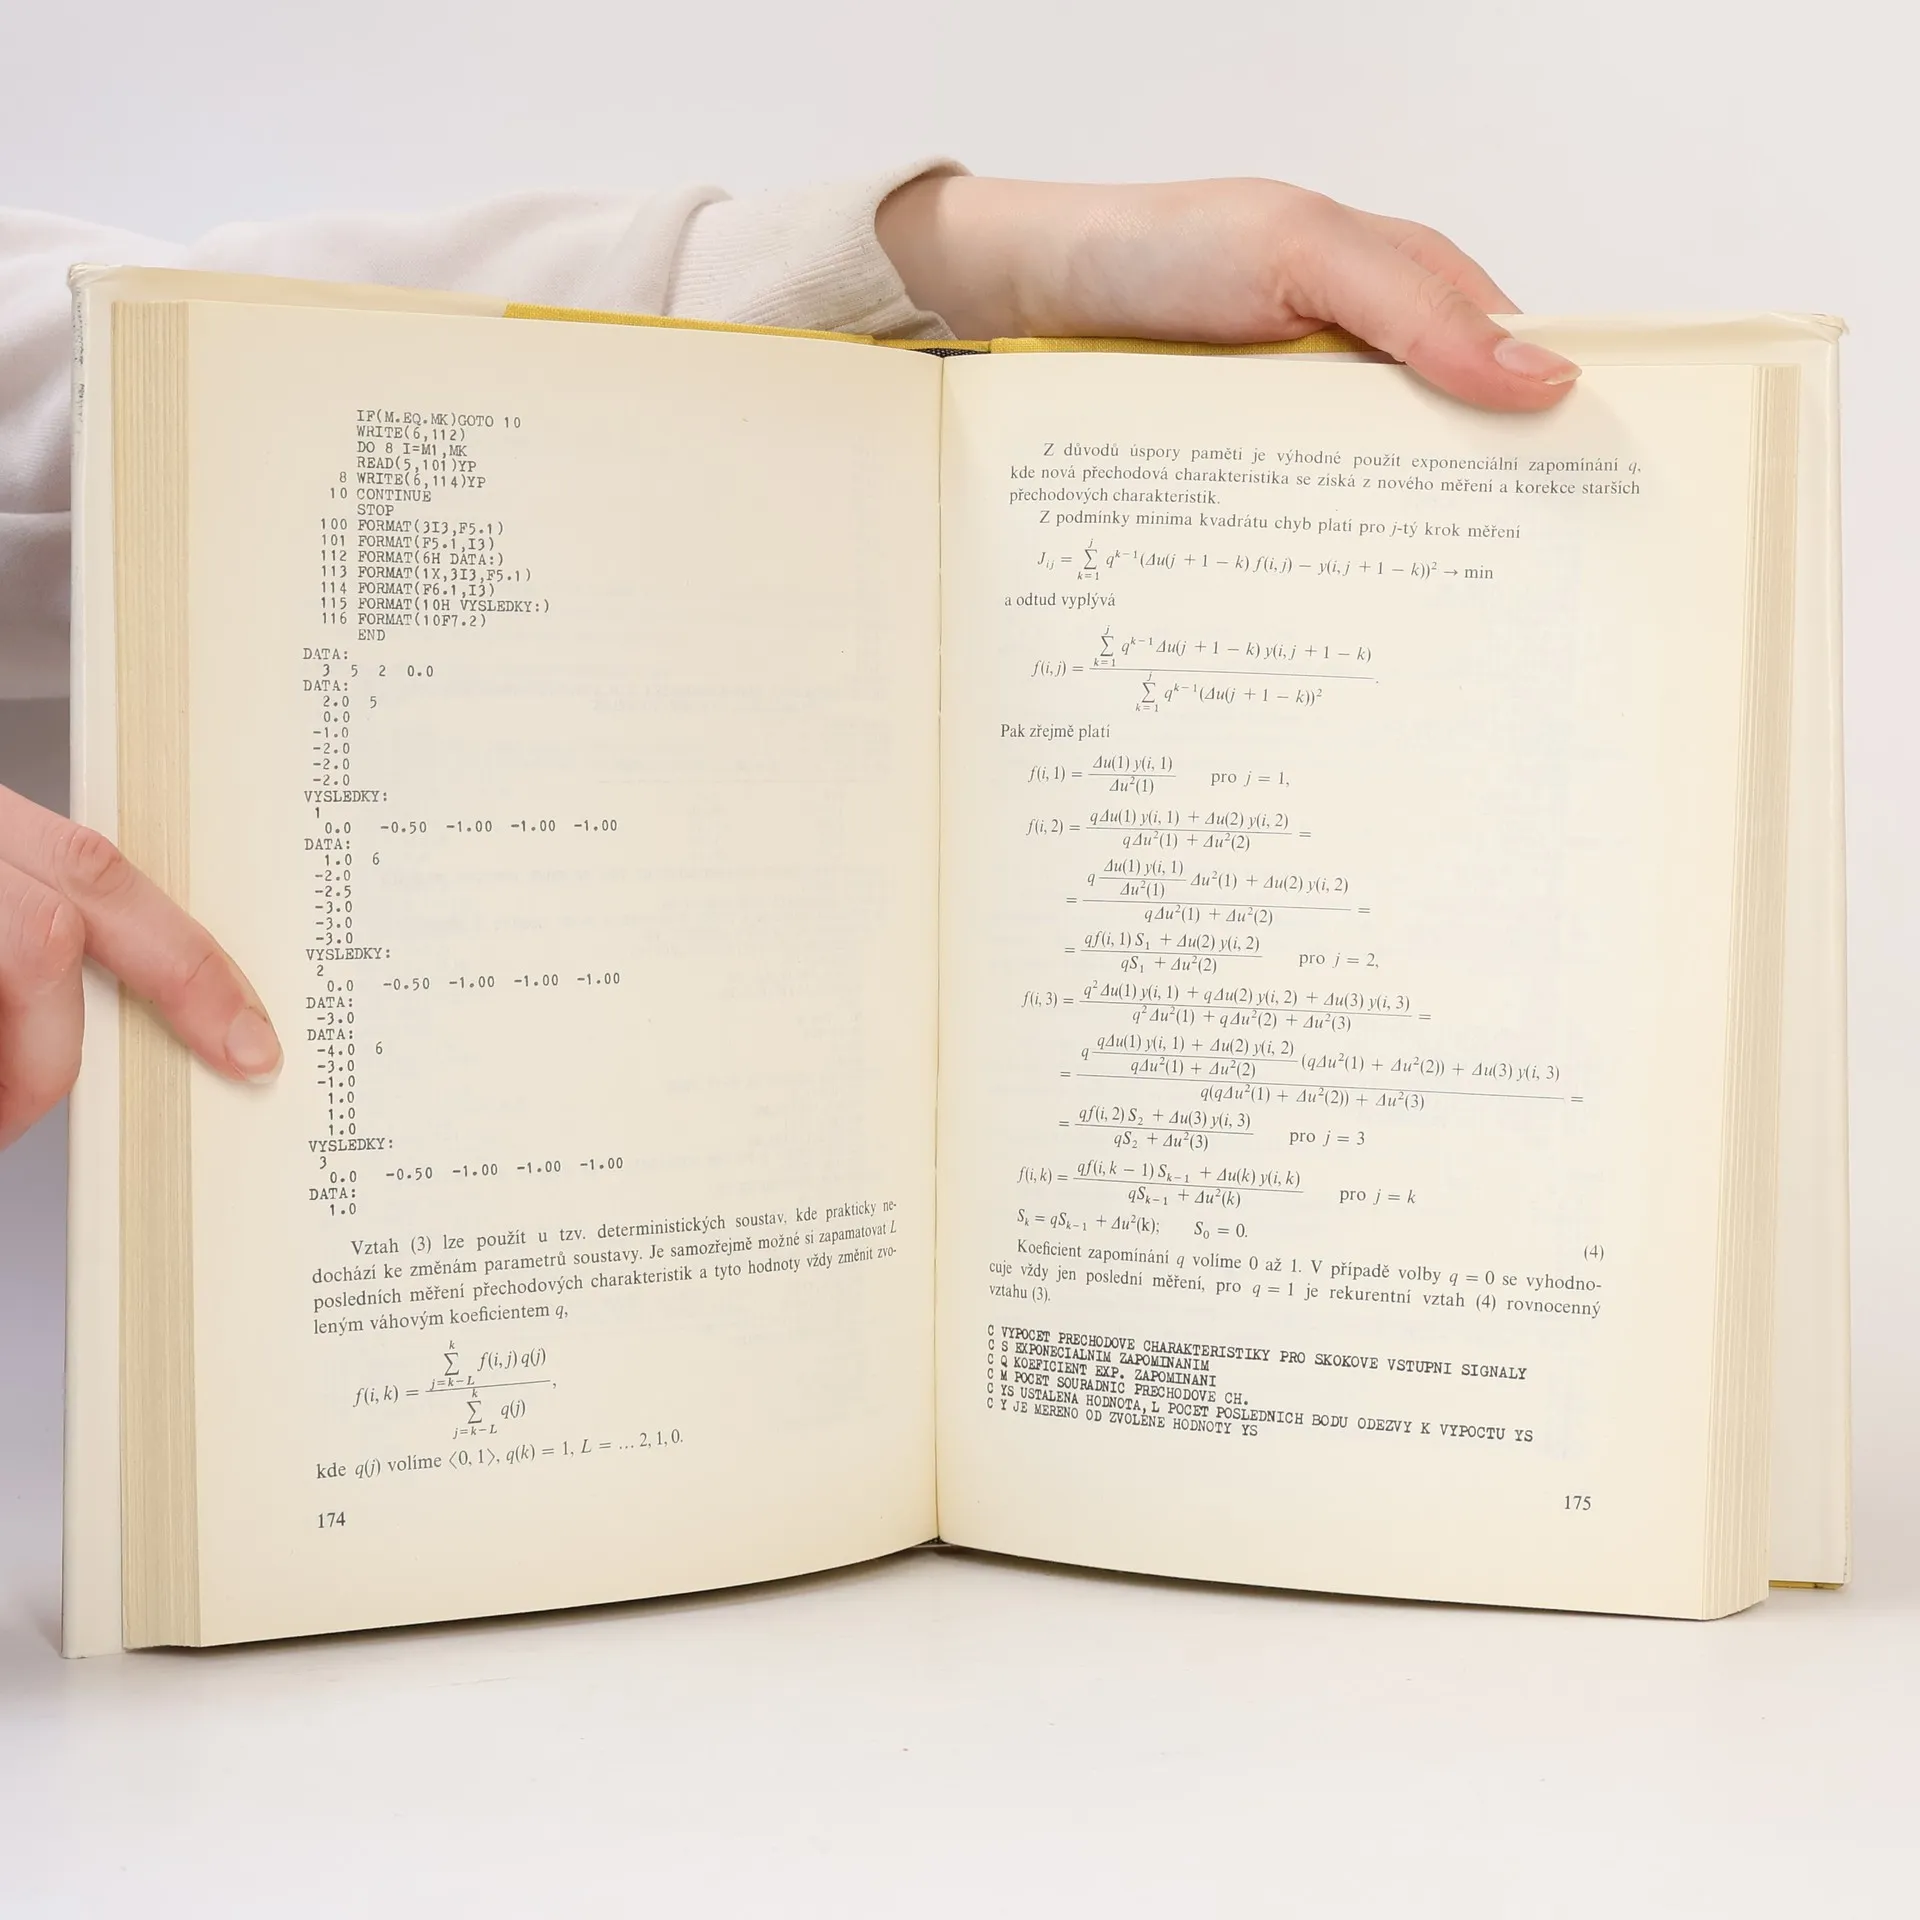 IF(M.EQ.MK)GOTO 10
WRITE(6,112)
DO 8 I=M1,MK
READ(5,101)YP
8 WRITE(6,114)YP
10 CONTINUE
STOP
100 FORMAT(3I3,F5.1)
101 FORMAT(F5.1,I3)
112 FORMAT(6H DATA:)
113 FORMAT(1X,3I3,F5.1)
114 FORMAT(F6.1,I3)
115 FORMAT(10H VYSLEDKY:)
116 FORMAT(10F7.2)
END
DATA:
3 5 2 0.0
DATA:
2.0 5
0.0
-1.0
-2.0
-2.0
-2.0
VYSLEDKY:
1
0.0 -0.50 -1.00 -1.00 -1.00
DATA:
1.0 6
-2.0
-2.5
-3.0
-3.0
-3.0
VYSLEDKY:
2
0.0 -0.50 -1.00 -1.00 -1.00
DATA:
-3.0
DATA:
-4.0 6
-3.0
-1.0
1.0
1.0
1.0
VYSLEDKY:
3
0.0 -0.50 -1.00 -1.00 -1.00
DATA:
1.0
Vztah (3) lze použít u tzv. deterministických soustav, kde prakticky ne-
dochází ke změnám parametrů soustavy. Je samozřejmě možné si zapamatovat L
posledních měření přechodových charakteristik a tyto hodnoty vždy změnit zvo-
leným váhovým koeficientem q,
f(i, k) = \frac{\sum_{j=k-L}^{k} f(i, j) q(j)}{\sum_{j=k-L}^{k} q(j)},
kde q(j) volíme ⟨0, 1⟩, q(k) = 1, L = ... 2, 1, 0.
174
Z důvodů úspory paměti je výhodné použít exponenciální zapomínání q,
kde nová přechodová charakteristika se získá z nového měření a korekce starších
přechodových charakteristik.
Z podmínky minima kvadrátu chyb platí pro j-tý krok měření
J_{ij} = \sum_{k=1}^{j} q^{k-1}(Δu(j + 1 − k) f(i, j) − y(i, j + 1 − k))² → min
a odtud vyplývá
f(i, j) = \frac{\sum_{k=1}^{j} q^{k-1} Δu(j + 1 − k) y(i, j + 1 − k)}{\sum_{k=1}^{j} q^{k-1}(Δu(j + 1 − k))²}.
Pak zřejmě platí
f(i, 1) = \frac{Δu(1) y(i, 1)}{Δu²(1)} pro j = 1,
f(i, 2) = \frac{qΔu(1) y(i, 1) + Δu(2) y(i, 2)}{qΔu²(1) + Δu²(2)} =
= \frac{q \frac{Δu(1) y(i, 1)}{Δu²(1)} Δu²(1) + Δu(2) y(i, 2)}{qΔu²(1) + Δu²(2)} =
= \frac{qf(i, 1) S₁ + Δu(2) y(i, 2)}{qS₁ + Δu²(2)} pro j = 2,
f(i, 3) = \frac{q²Δu(1) y(i, 1) + qΔu(2) y(i, 2) + Δu(3) y(i, 3)}{q²Δu²(1) + qΔu²(2) + Δu²(3)} =
= \frac{q \frac{qΔu(1) y(i, 1) + Δu(2) y(i, 2)}{qΔu²(1) + Δu²(2)} (qΔu²(1) + Δu²(2)) + Δu(3) y(i, 3)}{q(qΔu²(1) + Δu²(2)) + Δu²(3)} =
= \frac{qf(i, 2) S₂ + Δu(3) y(i, 3)}{qS₂ + Δu²(3)} pro j = 3
f(i, k) = \frac{qf(i, k − 1) S_{k−1} + Δu(k) y(i, k)}{qS_{k−1} + Δu²(k)} pro j = k
S_k = qS_{k−1} + Δu²(k); S₀ = 0. (4)
Koeficient zapomínání q volíme 0 až 1. V případě volby q = 0 se vyhodno-
cuje vždy jen poslední měření, pro q = 1 je rekurentní vztah (4) rovnocenný
vztahu (3).
C VYPOCET PRECHODOVE CHARAKTERISTIKY PRO SKOKOVE VSTUPNI SIGNALY
C S EXPONECIALNIM ZAPOMINANIM
C Q KOEFICIENT EXP. ZAPOMINANI
C M POCET SOURADNIC PRECHODOVE CH.
C YS USTALENA HODNOTA, L POCET POSLEDNICH BODU ODEZVY K VYPOCTU YS
C Y JE MERENO OD ZVOLENE HODNOTY YS
175